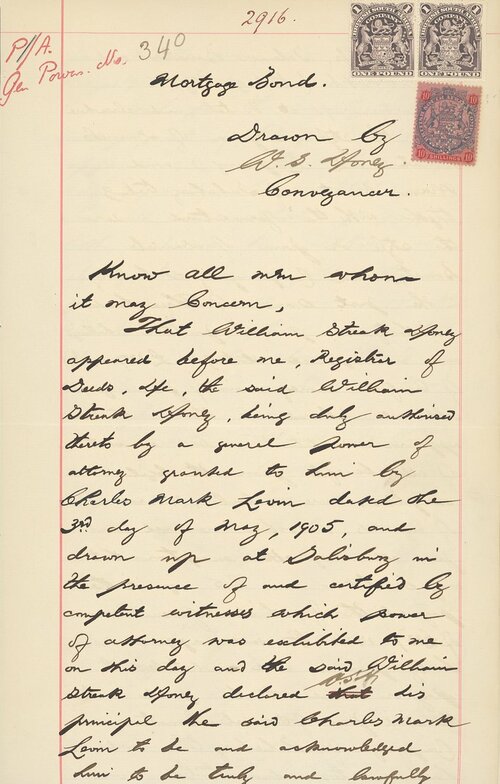 2916.
P/A.
Gen Powers. No. 340
1 BRITISH SOUTH AFRICA 1
COMPANY
ONE POUND
1 BRITISH SOUTH AFRICA 1
COMPANY
ONE POUND
10/ 10/
SHILLINGS
Mortgage Bond.
Drawn by
W. S. Honey.
Conveyancer.
Know all men whom
it may Concern,
That William Streak Honey
appeared before me, Registrar of
Deeds, He, the said William
Streak Honey, being duly authorised
thereto by a general power of
attorney granted to him by
Charles Mark Levin dated the
3rd day of May, 1905, and
drawn up at Salisbury in
the presence of and certified by
competent witnesses which power
of attorney was exhibited to me
on this day and the said William
Streak Honey declared that his
principal the said Charles Mark
Levin to be and acknowledged
him to be truly and lawfully